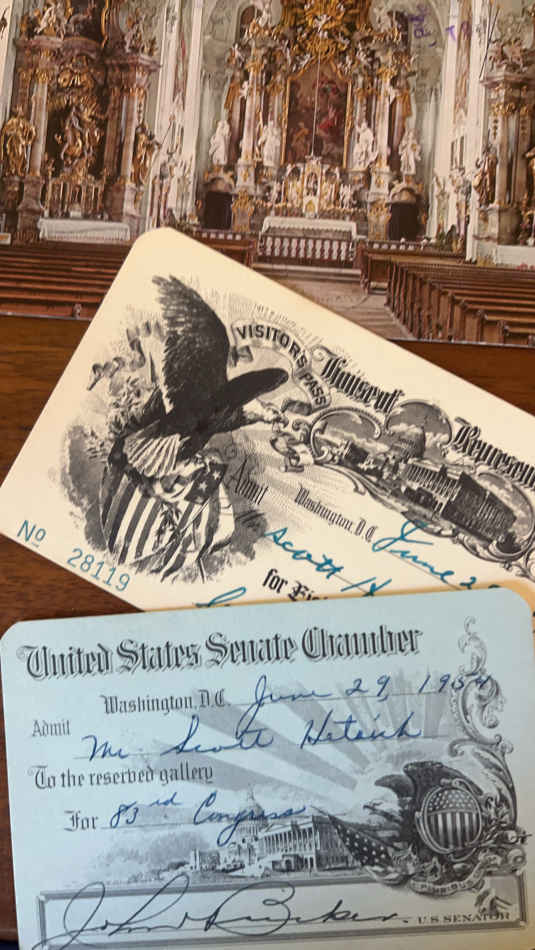 VISITOR'S PASS
House of Represen
Washington, D.C. June 2
Admit Scott H
for
Nº 28119
United States Senate Chamber
Washington, D.C. June 29, 1954
Admit
Mr. Scott
To the reserved gallery
For 83rd Congress
John
U.S. SENATOR